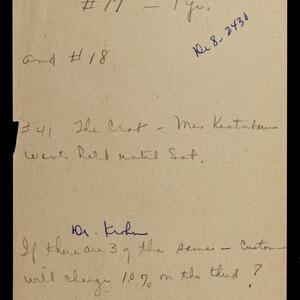 #17 — 1 yr.
De 8-2430
and #18
#41 The Crat — Mrs
Want held until Sat.
Dr. Krohn
If there are 3 of the same — Custom
will charge 10% on the third ?